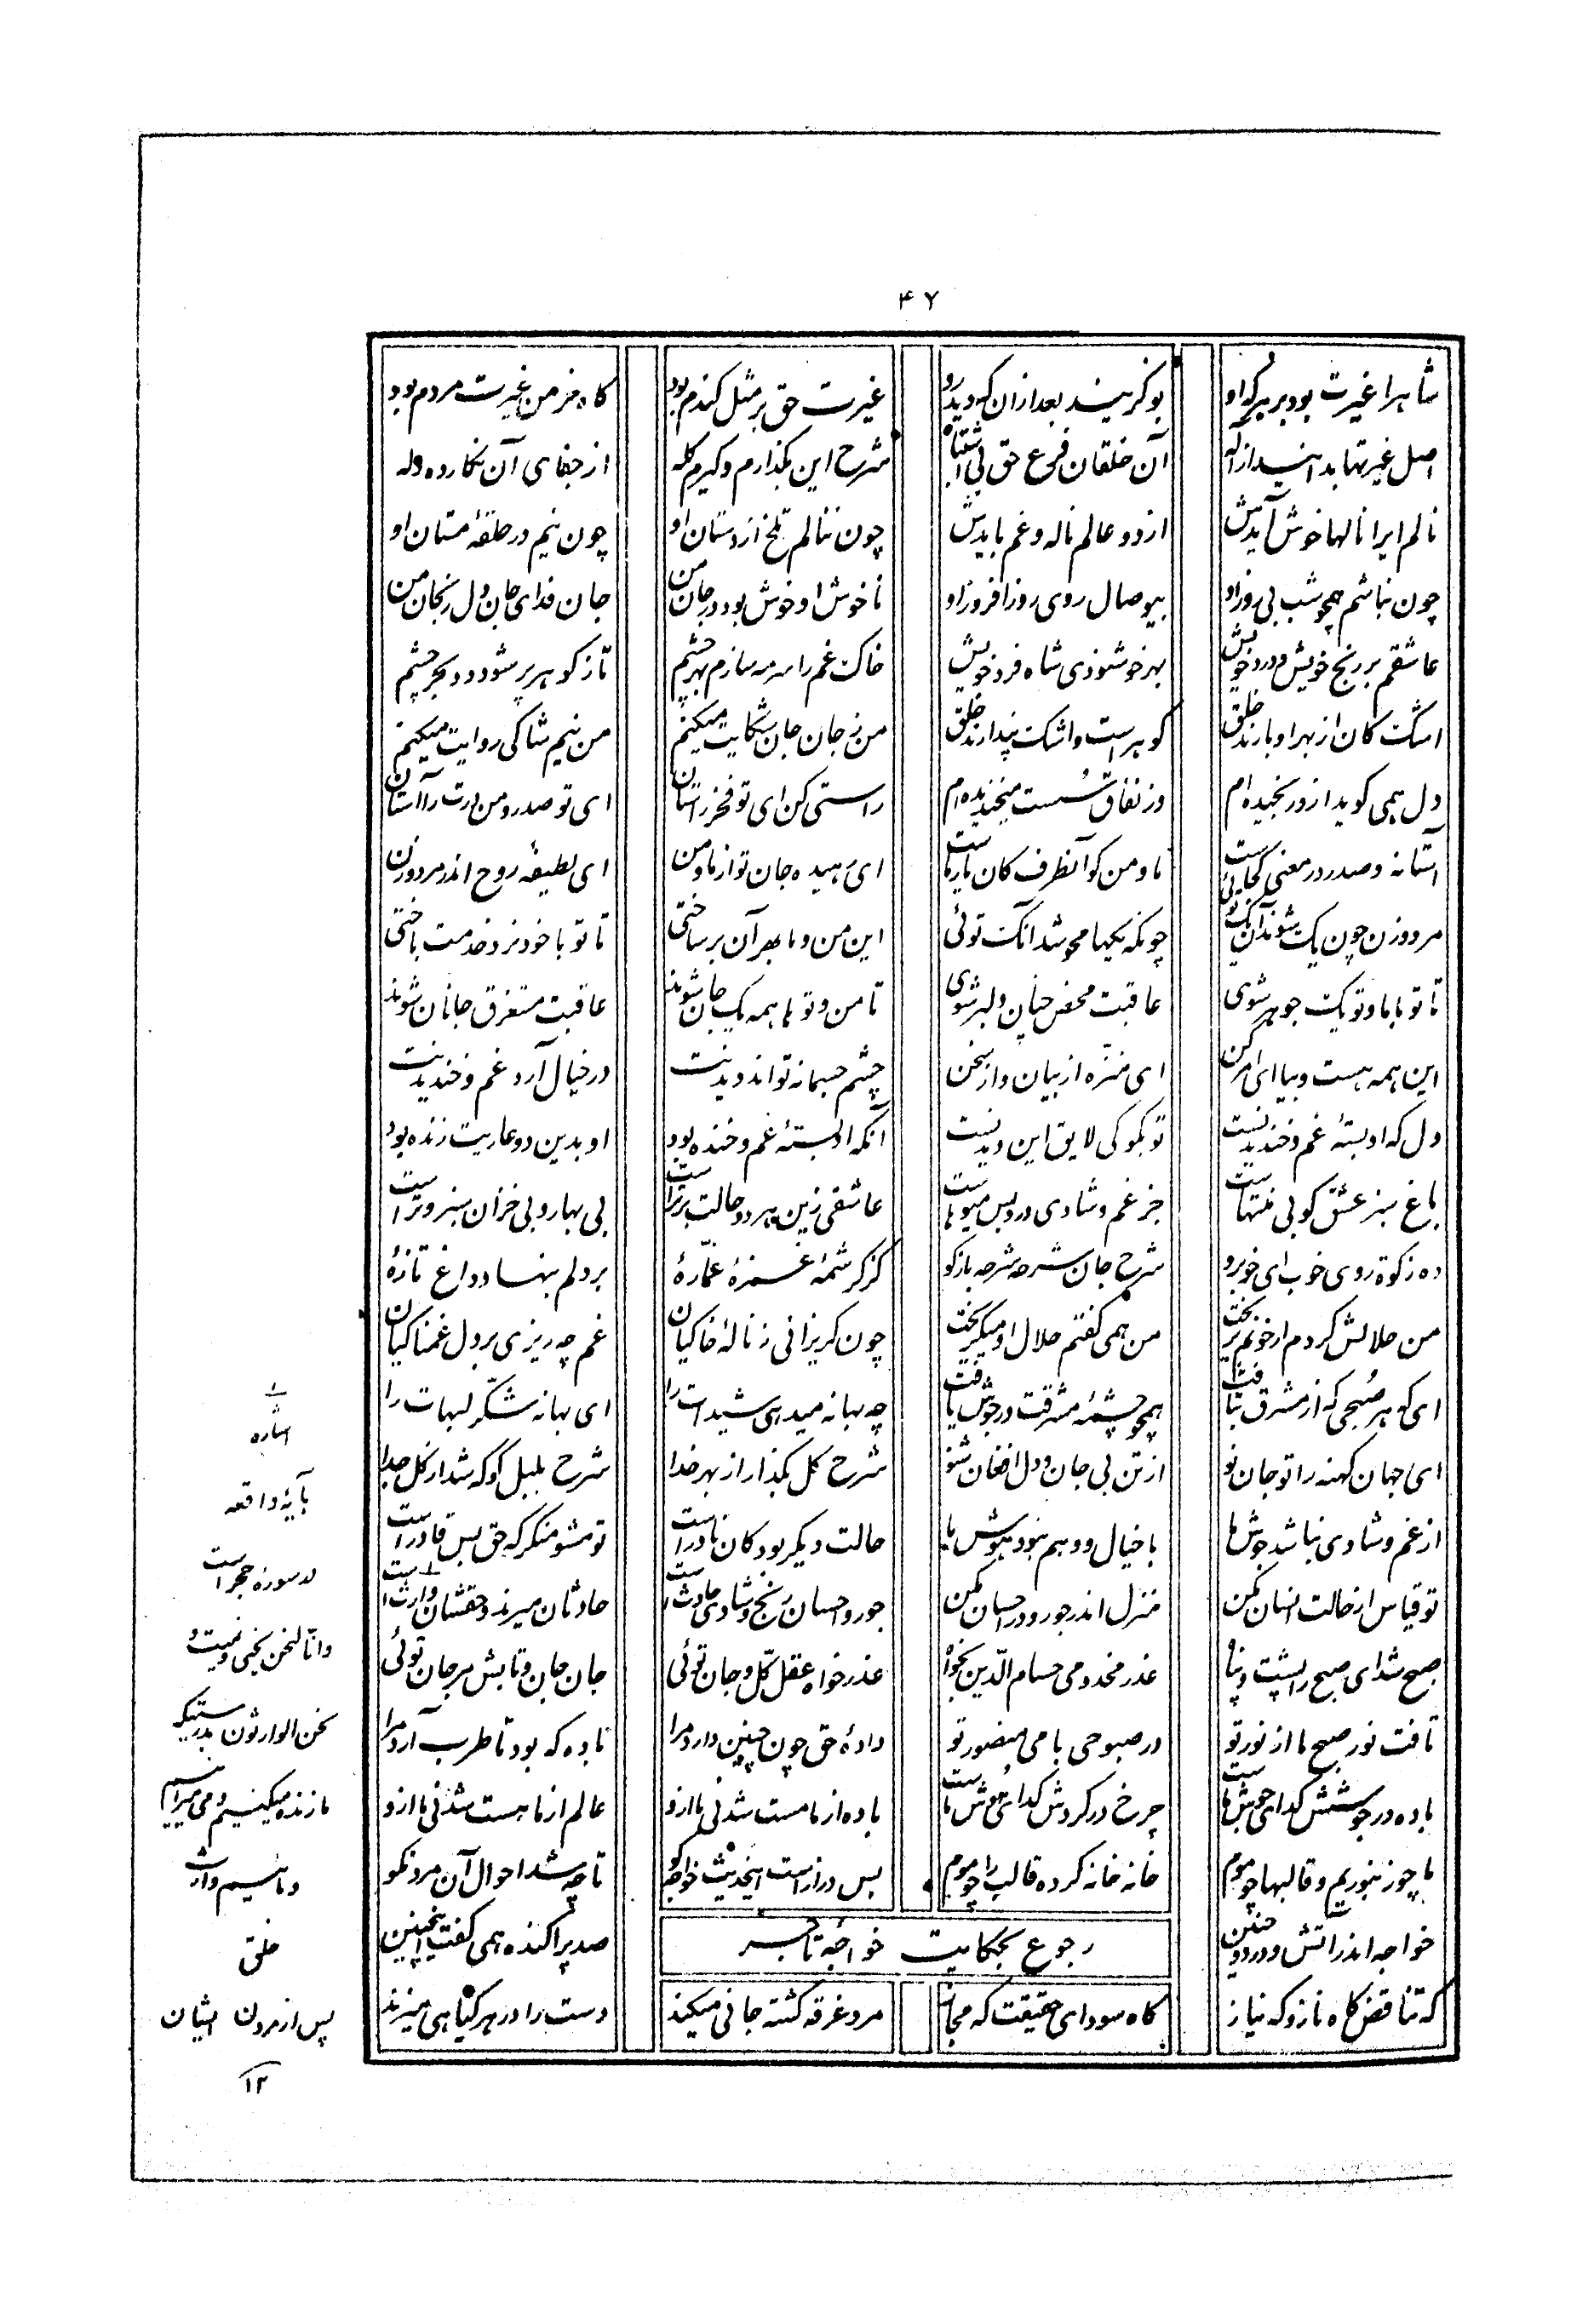 ۴۷
شاهرا غیرت بود بر هر که او بو گزیند بعد از ان که دید رو غیرت حق بر مثل گندم بود کاه خرمن غیرت مردم بود
اصل غیرتها بدانید از اله آن خلقان فرع حق بی اشتباه شرح این بگذارم و گیرم گله از جفای آن نگار ده دله
نالم ایرا نالها خوش آیدش از دو عالم ناله و غم بایدش چون ننالم تلخ از دستان او چون نیم در حلقهٔ مستان او
چون نباشم همچو شب بی روز او بیوصال روی روز افروز او ناخوش او خوش بود در جان من جان فدای جان دل رنجان من
عاشقم بر رنج خویش و درد خویش بهر خوشنودی شاه فرد خویش خاک غم را سرمه سازم بهر چشم تا ز گوهر پر شود دو بحر چشم
اشک کان از بهر او بارند خلق گوهر است و اشک پندارند خلق من ز جان جان شکایت میکنم من نیم شاکی روایت میکنم
دل همی گوید ازو رنجیده ام وز نفاق سُست میخندیده ام راستی کن ای تو فخر راستان ای تو صدر و من درت را آستان
آستانه و صدر در معنی کجاست ما و من کو آنطرف کان یار ماست ای رهیده جان تو از ما و من ای لطیفهٔ روح اندر مرد و زن
مرد و زن چون یک شوند آن یک توئی چونکه یکها محو شد انک توئی این من و ما بهر آن بر ساختی تا تو با خود نرد خدمت باختی
تا تو با ما و تو یک جوهر شوی عاقبت محض چنان دلبر شوی تا من و تو ها همه یک جان شوند عاقبت مستغرق جانان شوند
این همه هست و بیا ای امر کن ای منزّه از بیان و از سخن چشم جسمانه تواند دیدنت در خیال آرد غم و خندیدنت
دل که او بستهٔ غم و خندیدنست تو بگو کی لایق این دیدنست آنکه او بستهٔ غم و خنده بود او بدین دو عاریت زنده بود
باغ سبز عشق کو بی منتهاست جز غم و شادی درو بس میوهاست عاشقی زین هر دو حالت برتر است بی بهار و بی خزان سبز و تر است
ده زکوة روی خوب ای خوبرو شرح جان شرحه شرحه بازگو کز کرشمهٔ غمزهٔ غمّازهٔ بر دلم بنهاد داغ تازهٔ
من حلالش کردم ار خونم بریخت من همی گفتم حلال او میگریخت چون گریزانی ز نالهٔ خاکیان غم چه ریزی بر دل غمناکیان
ای که هر صُبحی که از مشرق بتافت همچو چشمهٔ مشرقت در جوش یافت چه بهانه میدهی شیدات را ای بهانه شکّر لبهات را
ای جهان کهنه را تو جان نو از تن بی جان و دل افغان شنو شرح گل بگذار از بهر خدا شرح بلبل گو که شد از گل جدا
از غم و شادی نباشد جوش ما با خیال و وهم نبود هوش ما حالت دیگر بود کان نادر است تو مشو منکر که حق بس قادر است
تو قیاس از حالت انسان مکن منزل اندر جور و در احسان مکن جور و احسان رنج و شادی حادث است حادثان میرند و حقشان وارث است
صبح شد ای صبح را پشت و پناه عذر مخدومی حسام الدّین بخواه عذر خواه عقل کلّ و جان توئی جان جان و تابش مرجان توئی
تافت نور صبح ما از نور تو در صبوحی با می منصور تو دادهٔ حق چون چنین دارد مرا باده که بود تا طرب آرد مرا
باده در جوشش گدای جوش ماست چرخ در گردش گدای هوش ماست باده از ما مست شد نی ما ازو عالم از ما هست شد نی ما ازو
ما چو زنبوریم و قالبها چو موم خانه خانه کرده قالب را چو موم بس دراز است اینحدیث خواجه گو تا چه شد احوال آن مرد نکو
رجوع بحکایت خواجه تاجر
خواجه اندر آتش و درد و حنین صد پراکنده همی گفت اینچنین
که تناقض گاه ناز و گه نیاز گاه سودای حقیقت که مجاز مرد غرقه گشته جانی میکند دست را در هر گیاهی میزند
۱
اشاره
بآیهٔ واقعه
در سوره حجر است
و انّا لنحن نحیی و نمیت و
نحن الوارثون بدرستیکه
ما زنده میکنیم و می میرانیم
و مائیم وارث
خلق
پس از مردن ایشان
۱۲